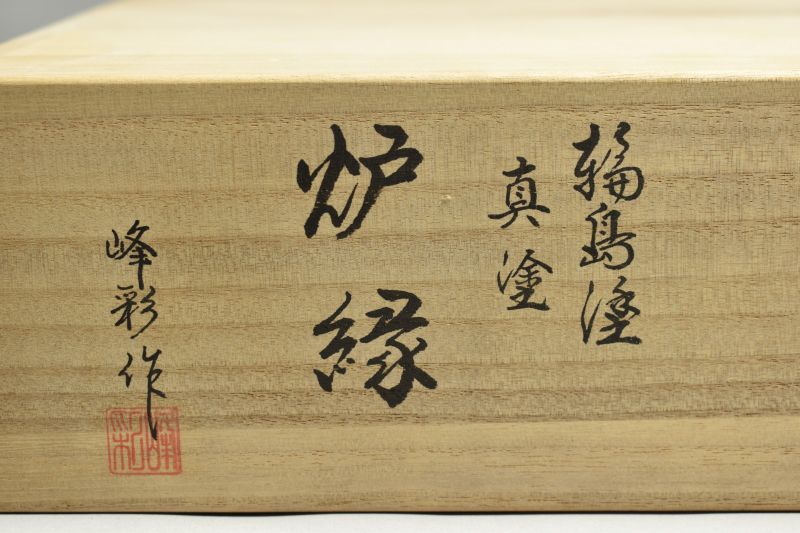 輪島塗
真塗
炉縁
峰彩作
峰彩